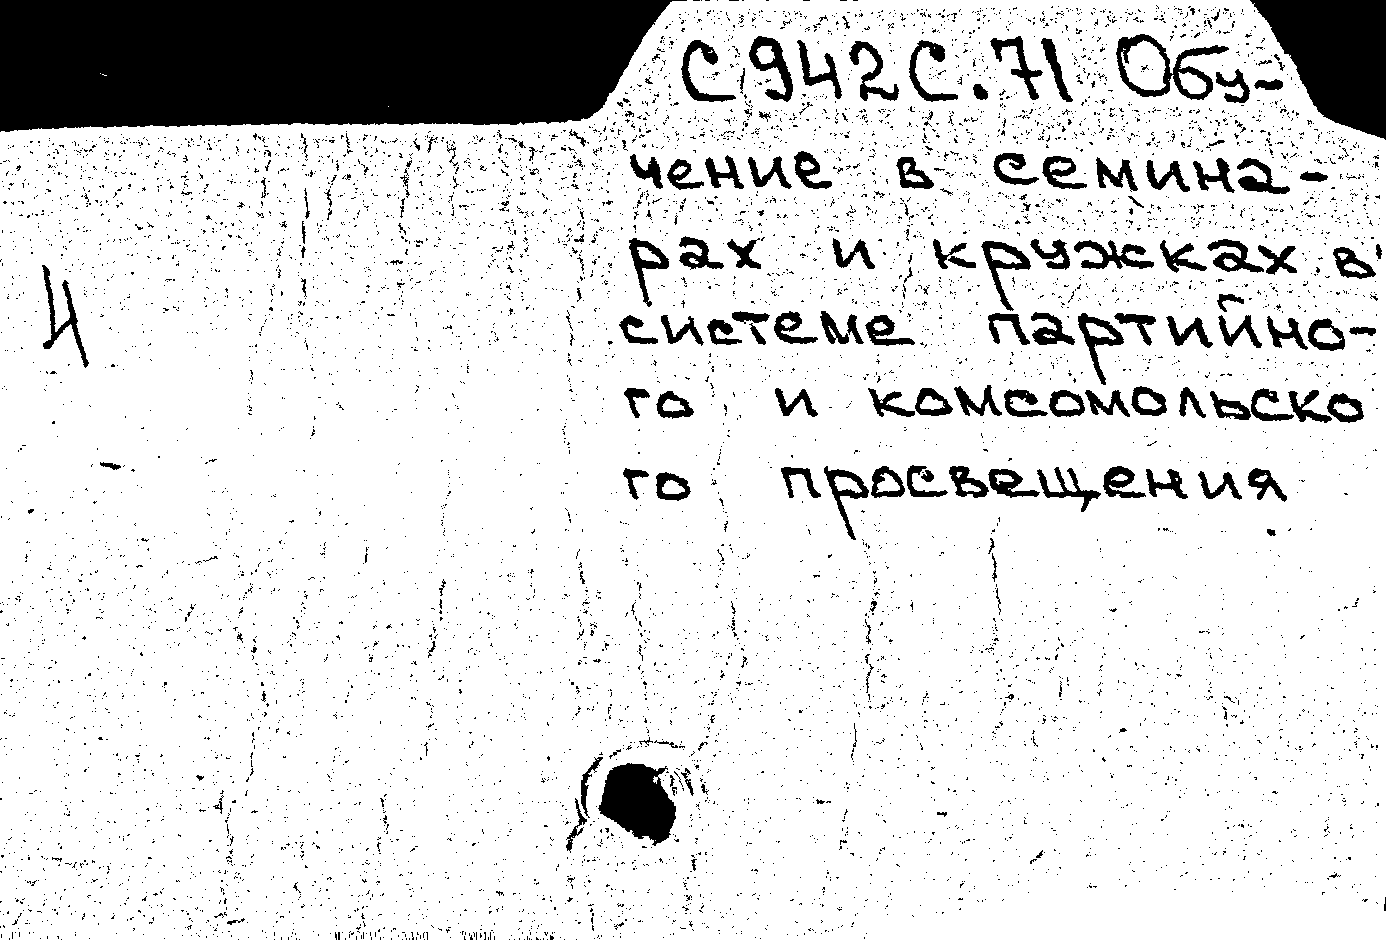 С942С.71 Обу-
чение в семина-
рах и кружках в
системе партийно-
го и комсомольско
го просвещения
4